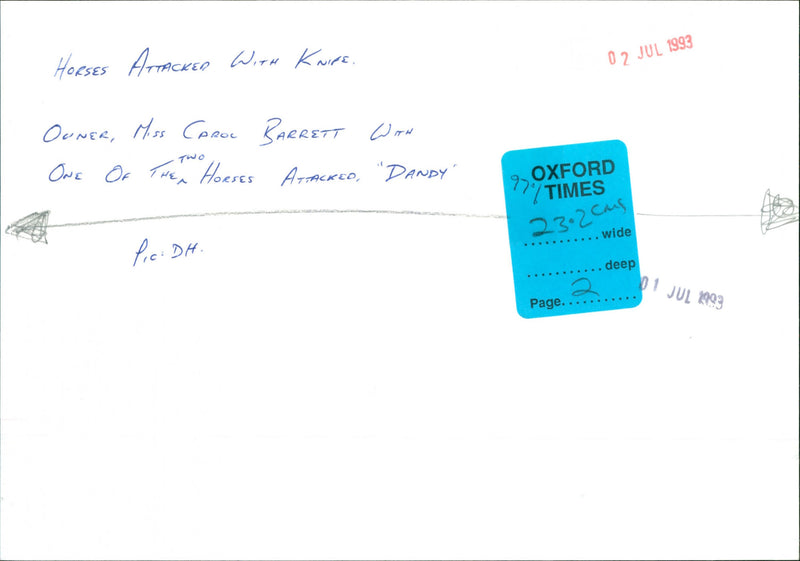 HORSES ATTACKED WITH KNIFE.
02 JUL 1993
OWNER, MISS CAROL BARRETT WITH
ONE OF THE TWO HORSES ATTACKED, "DANDY"
PIC: DH.
OXFORD
97% TIMES
23.2 CMS
............ wide
............ deep
Page. 2
01 JUL 1993